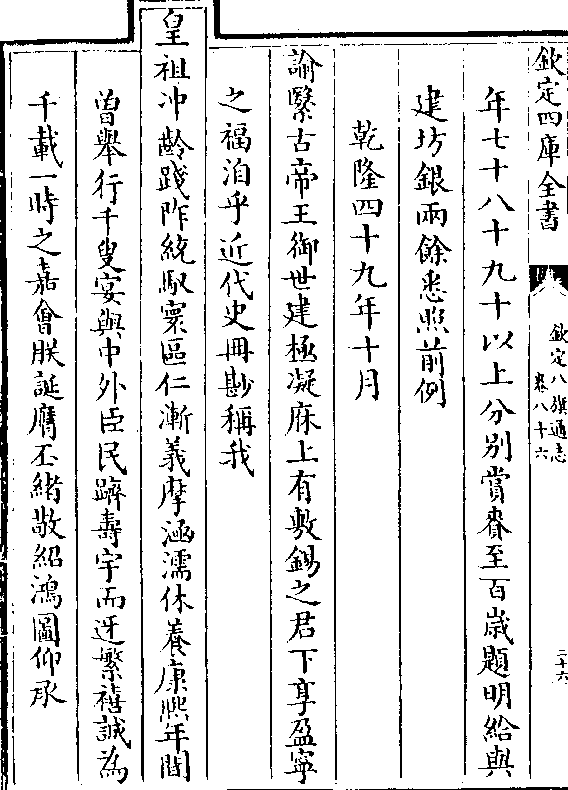 欽定四庫全書
欽定八旗通志
卷八十六
三十六
年七十八十九十以上分别賞賚至百歲題明給與
建坊銀兩餘悉照前例
乾隆四十九年十月
諭緊古帝王御世建極凝庥上有敷錫之君下享盈寧
之福洎乎近代史冊尠稱我
皇祖冲齡踐阼統馭寰區仁漸義摩涵濡休養康熙年間
曾舉行千叟宴與中外臣民躋壽宇而迓繁禧誠為
千載一時之嘉會朕誕膺丕緒敬紹鴻圖仰承